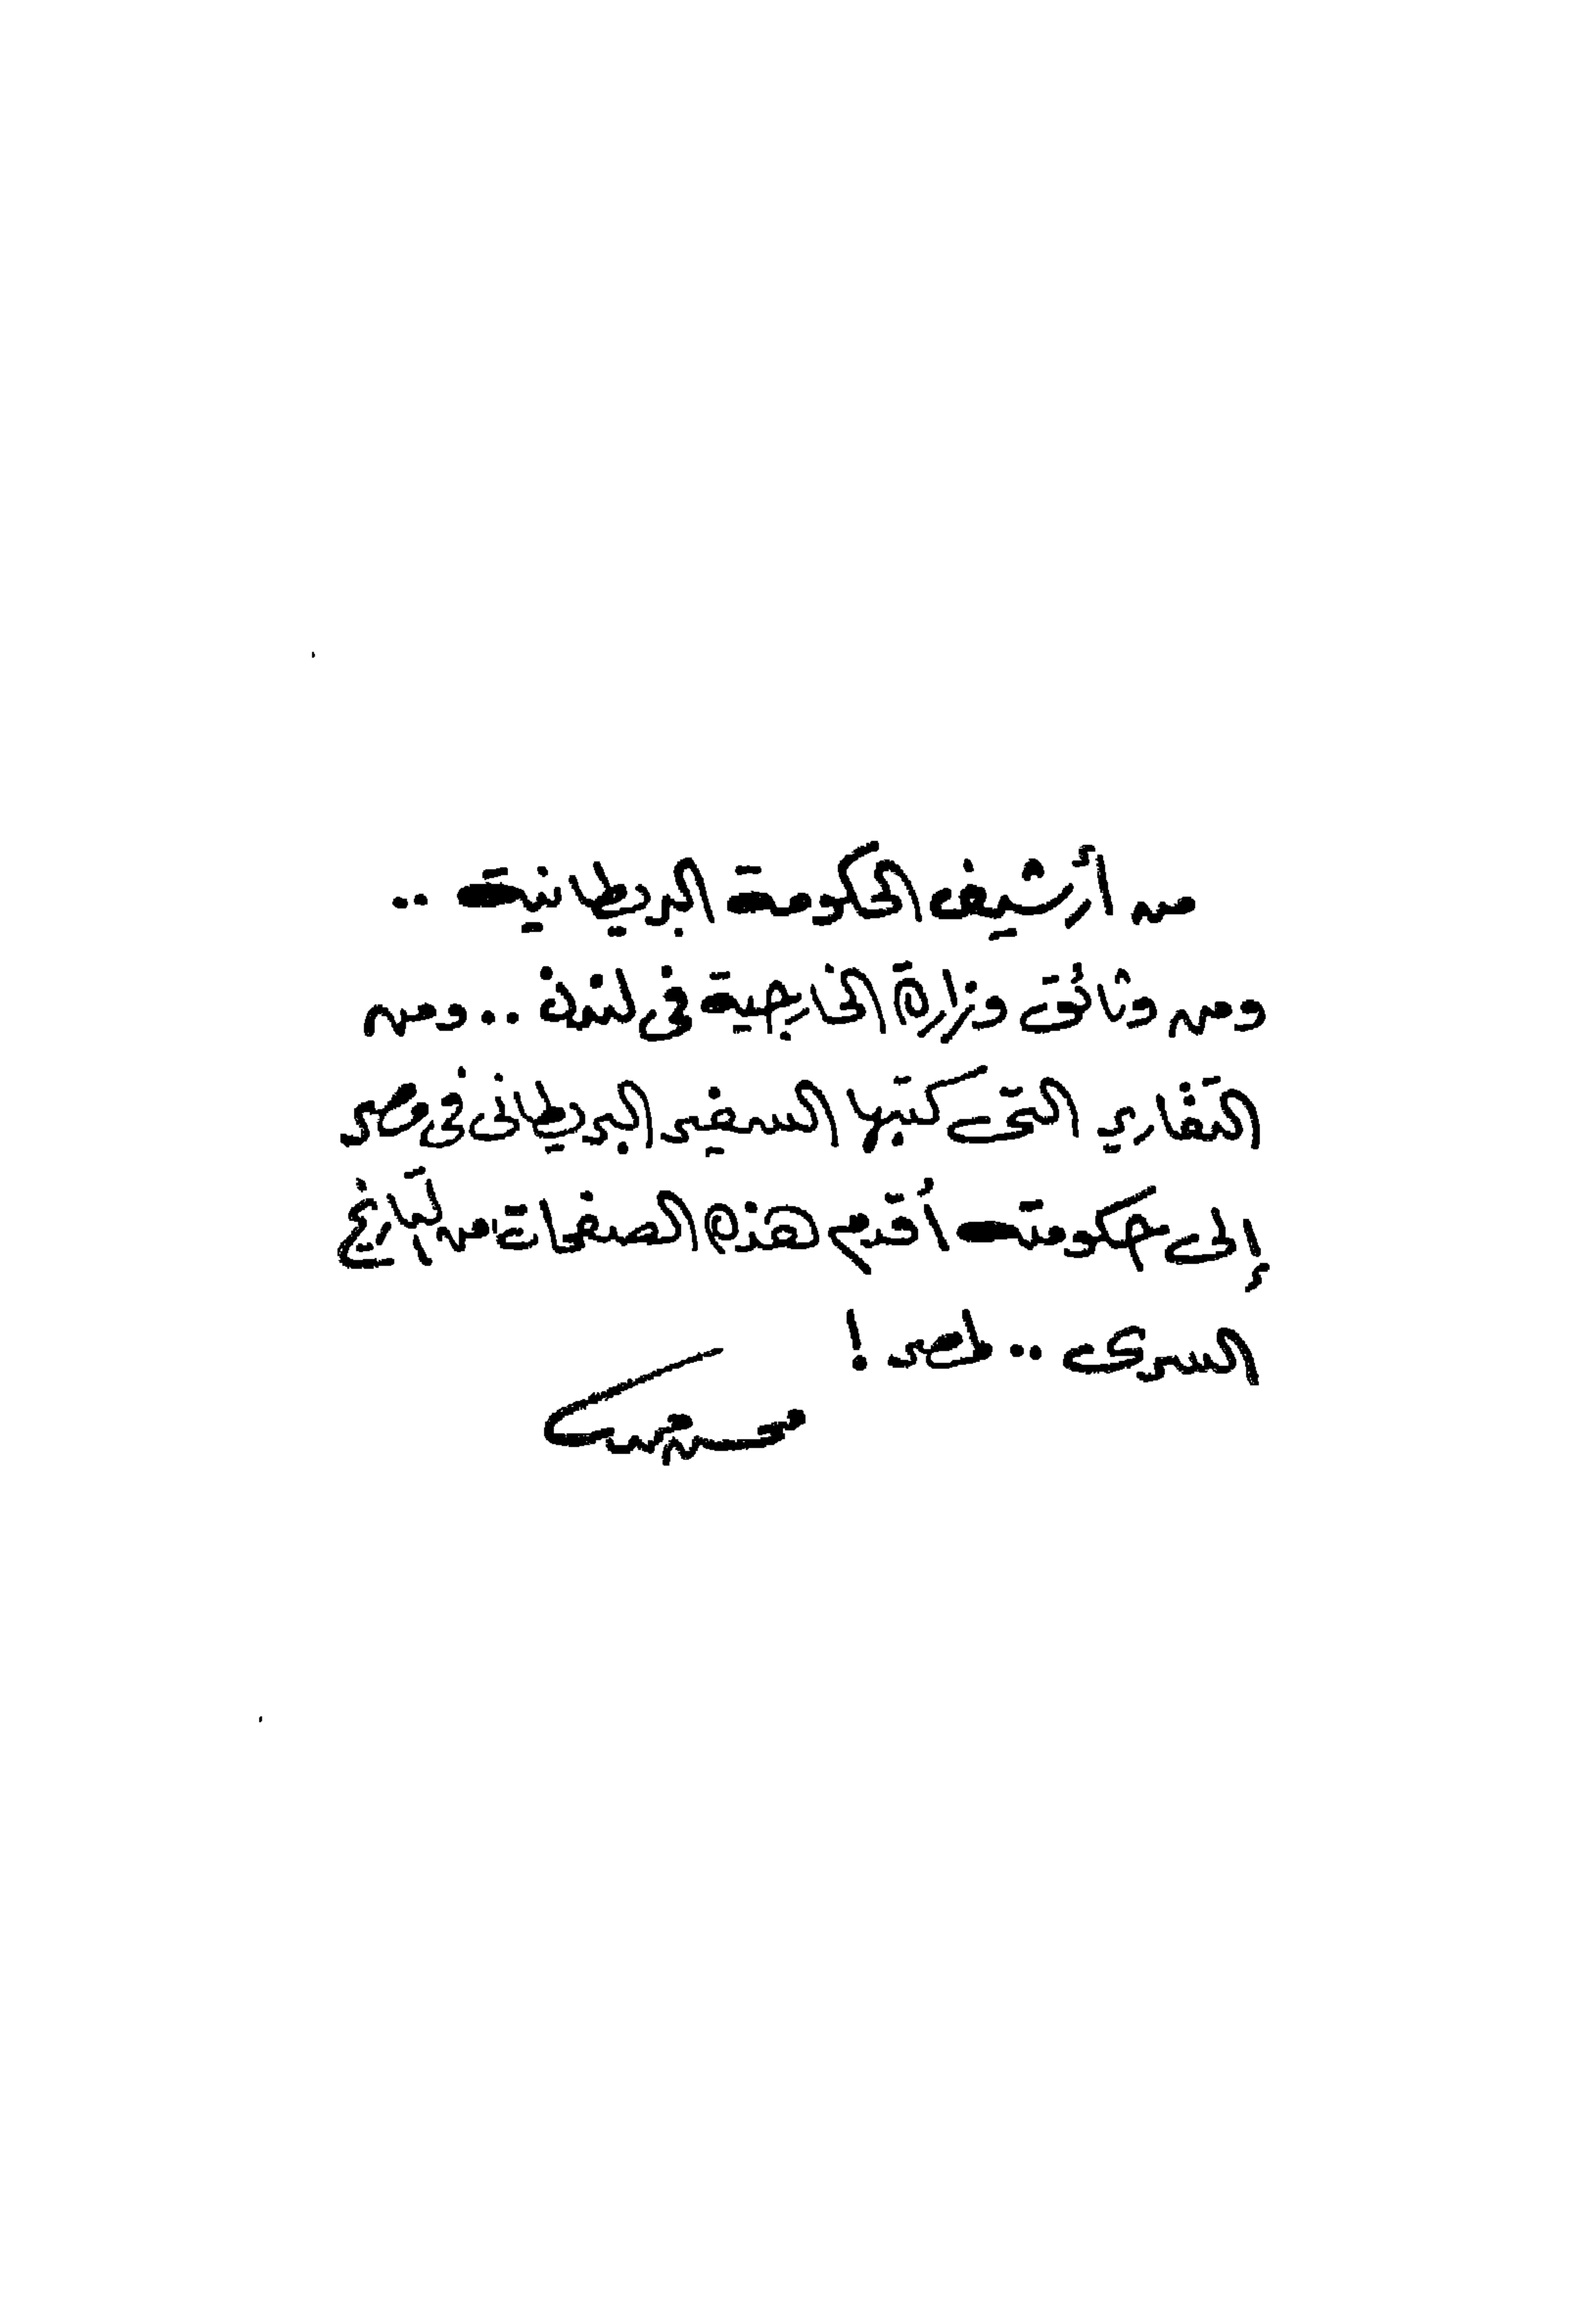 من أرشيف الحكومة البريطانية ..
ومن وثائق وزارة الخارجية في لندن .. ومن
التقارير التى كتبها السفير البريطانى فى مصر
إلى حكومته أقدم هذه الصفحات من التاريخ
السرى .. لمصر !